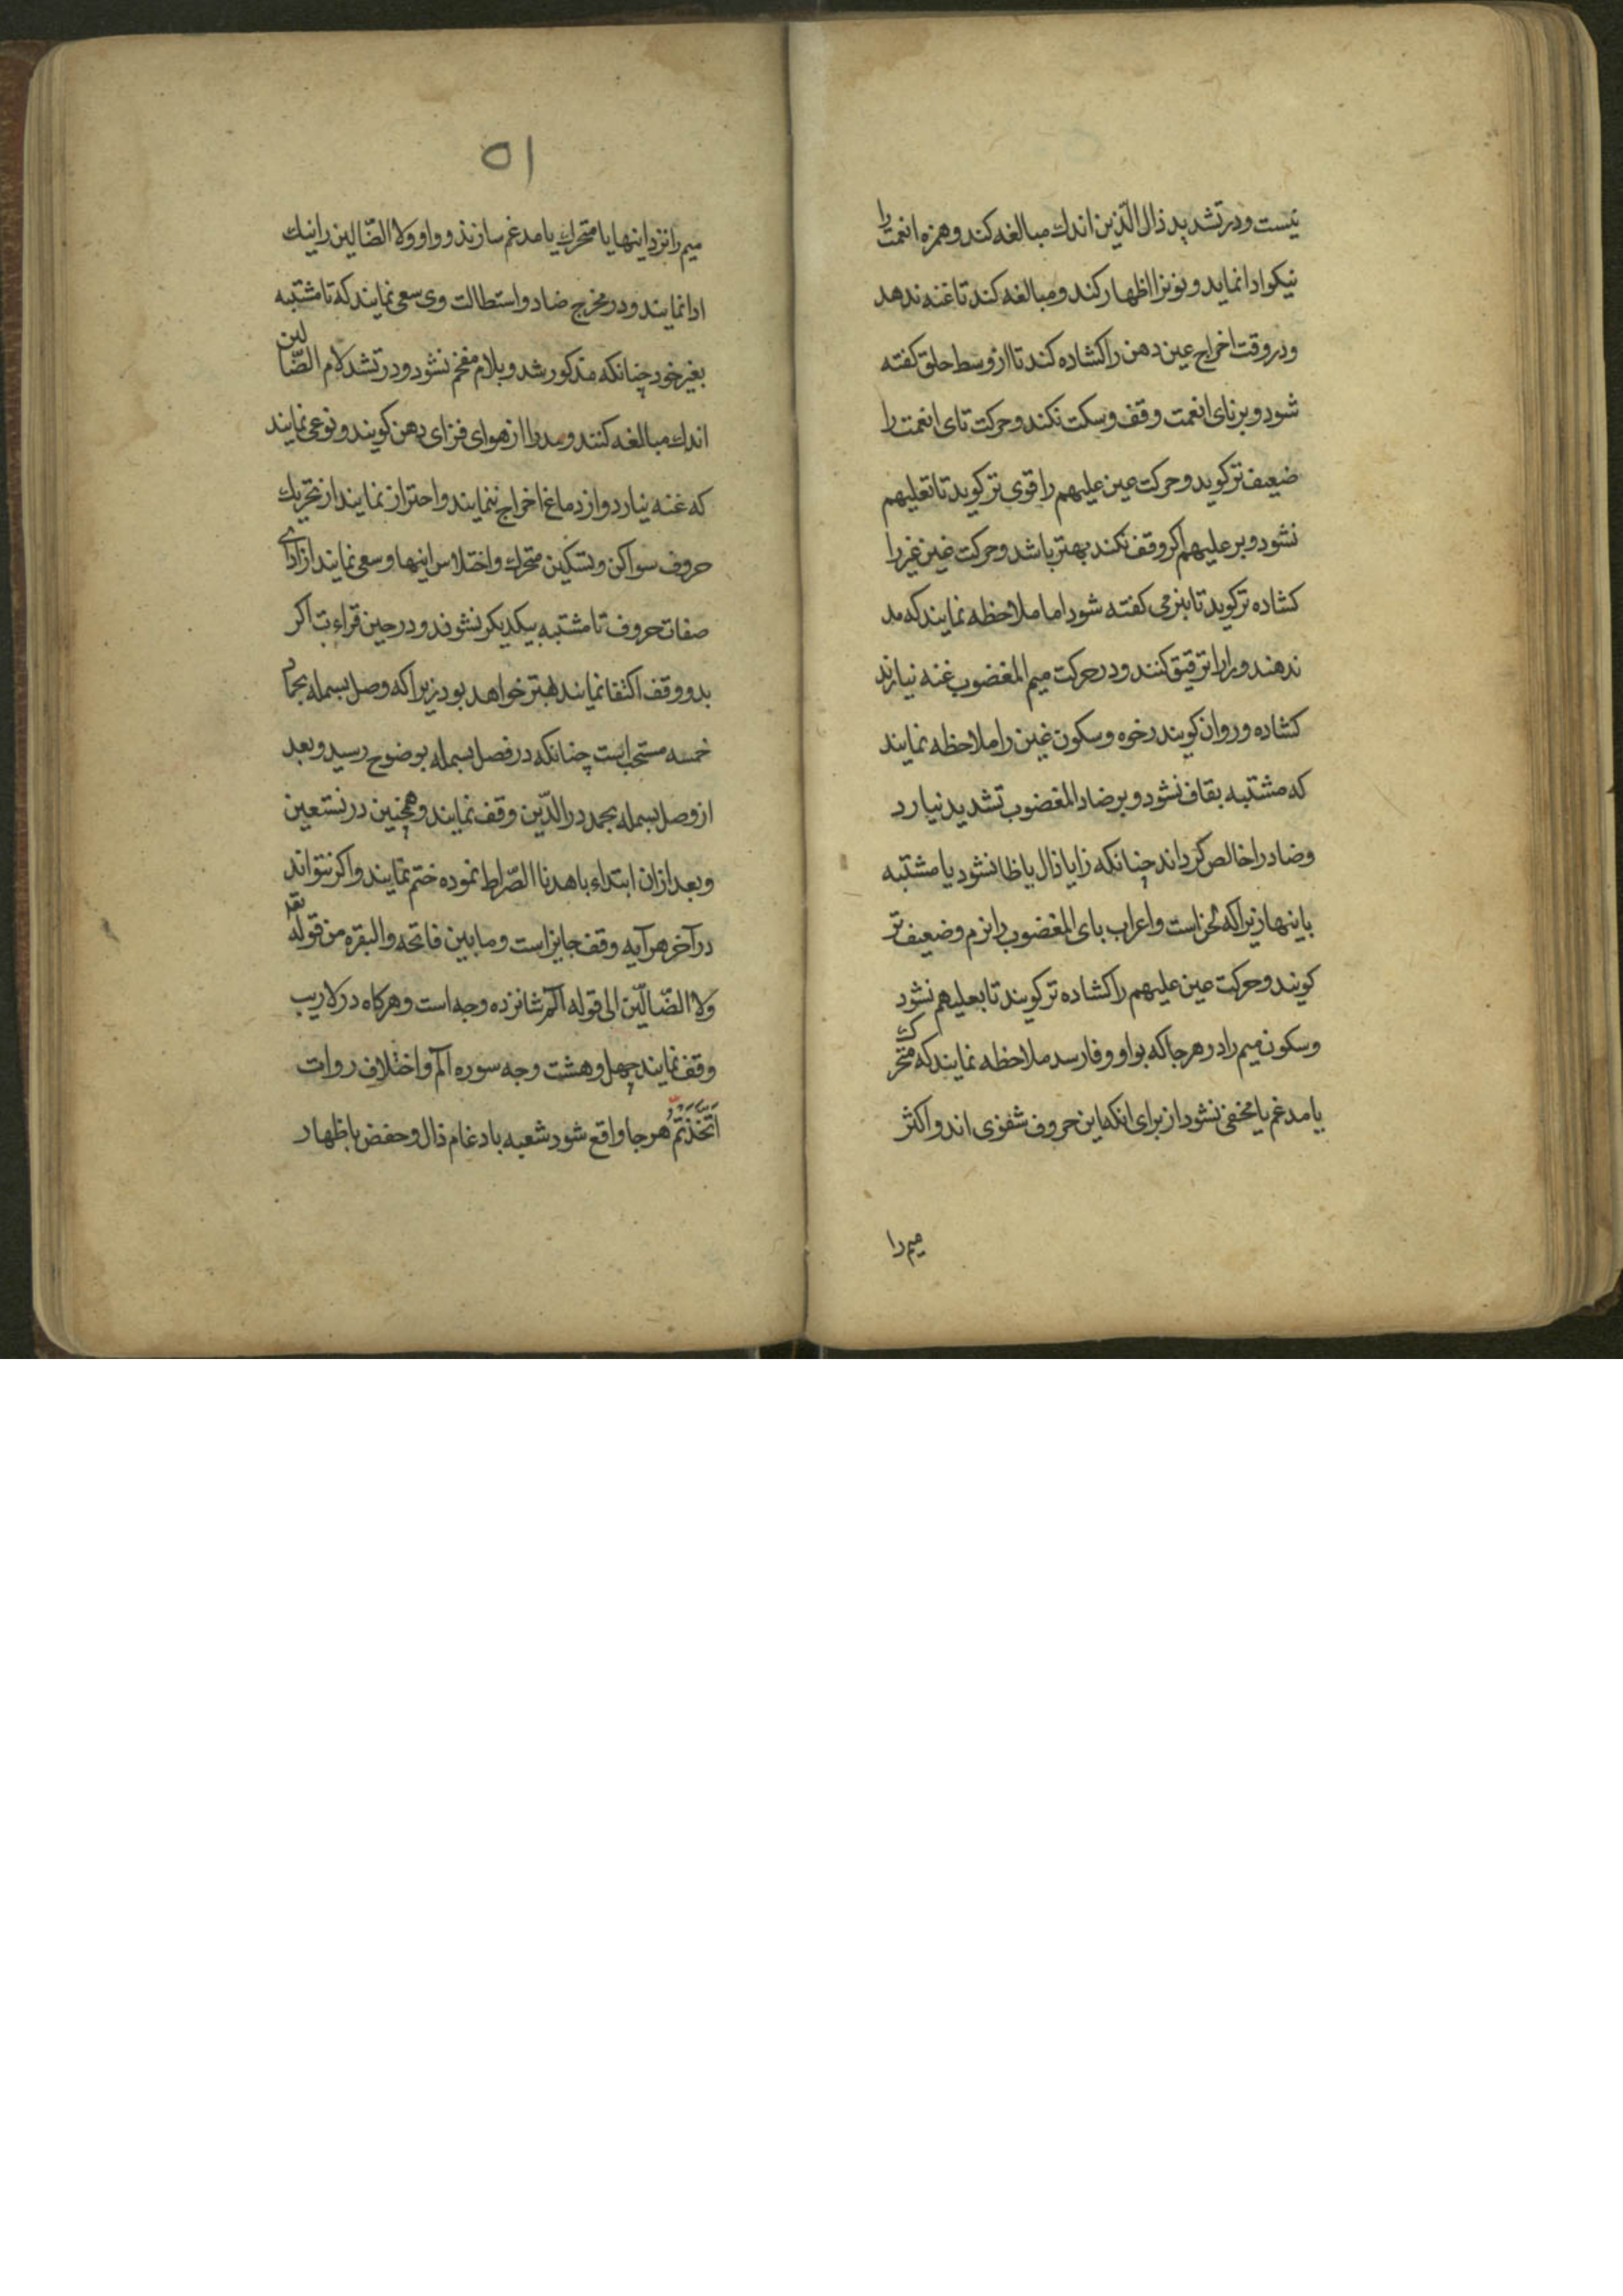 نیست ودر تشدید ذال الّذین اندك مبالغه کند وهمزه انعمت را
نیکو ادا نماید ونونرا اظهار کند ومبالغه کند تا غنه ندهد
ودر وقت اخراج عین دهن را کشاده کند تا از وسط حلق کفته
شود وبر تای انعمت وقف وسکت نکند وحرکت تای انعمت را
ضعیف تر کوید وحرکت عین علیهم را قوی تر کوید تا تعلیهم
نشود وبر علیهم اکر وقف نکند بهتر باشد وحرکت غین غیر را
کشاده تر کوید تا بنرمی کفته شود اما ملاحظه نمایند که مد
ندهند ورا را ترقیق کنند ودر حرکت میم المغضوب غنه نیارند
کشاده وروان کویند رخوه وسکون غین را ملاحظه نمایند
که مشتبه بقاف نشود وبر ضاد المغضوب تشدید نیارد
وضاد را خالص کرداند چنانکه زا یا ذال یا ظا نشود یا مشتبه
باینها زیرا که لحن است واعراب بای المغضوب را نرم وضعیف تر
کویند وحرکت عین علیهم را کشاده تر کویند تا بعلیهم نشود
وسکون میم را در هر جا که بواو وفا رسد ملاحظه نمایند که متحرك
یا مدغم یا مخفی نشود از برای انکه این حروف شفوی اند واکثر
میم را
۵۱
میم را نزد اینها یا متحرك یا مدغم سازند وواو ولا الضّالین را نیك
ادا نمایند ودر مخرج ضاد واستطالت وی سعی نمایند که تا مشتبه
بغیر خود چنانکه مذکور شد وبلام مفخم نشود ودر تشد لام الضّالین
اندك مبالغه کنند ومد را از هوای فزای دهن کویند ونوعی نمایند
که غنه نیارد واز دماغ اخراج ننمایند واحتراز نمایند از تحریك
حروف سواکن وتسکین متحرك واختلاس اینها وسعی نمایند از ادای
صفات حروف تا مشتبه بیکدیکر نشوند ودر حین قراءت اکر
بدو وقف اکتفا نمایند بهتر خواهد بود زیرا که وصل بسمله بحامد
خمسه مستحب است چنانکه در فصل بسمله بوضوح رسید وبعد
از وصل بسمله بحمد در الدّین وقف نمایند وهمچنین در نستعین
وبعد از ان ابتداء باهدنا الصّراط نموده ختم نمایند واکر نتواند
در آخر هر آیه وقف جایز است وما بین فاتحه والبقره من قوله تعه
ولا الضّالّین الی قوله الم شانزده وجه است وهرکاه در لا ریب
وقف نمایند چهل وهشت وجه سوره الم واختلاف روات
اتَّخَذْتُمْ هر جا واقع شود شعبه بادغام ذال وحفص باظهار